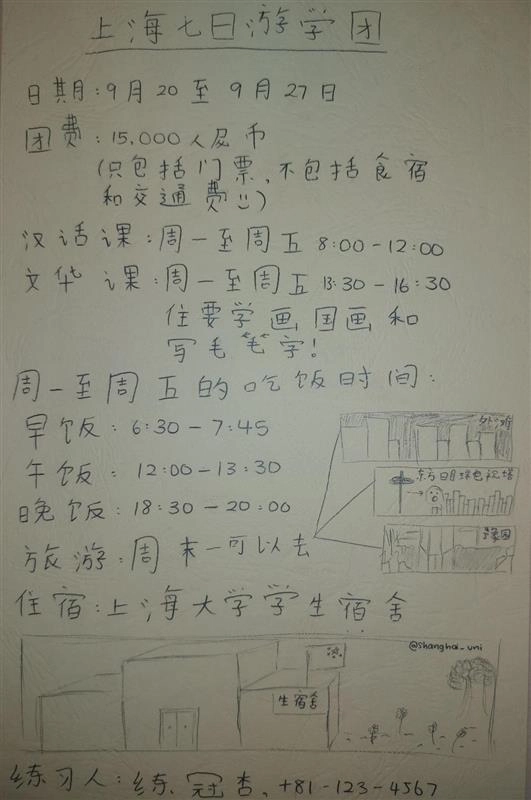 上海七日游学团
日期:9月20至9月27日
团费:15,000人民币
(只包括门票,不包括食宿
和交通费)
汉话课:周一至周五 8:00-12:00
文华 课:周一至周五 13:30-16:30
住要学画国画和
写毛笔字!
周一至周五的吃饭时间:
早饭:6:30-7:45
午饭:12:00-13:30
晚饭:18:30-20:00
外滩
东方明珠电视塔
豫园
旅游:周末一可以去
住宿:上海大学学生宿舍
@shanghai_uni
生宿舍
练习人:练冠杏,+81-123-4567